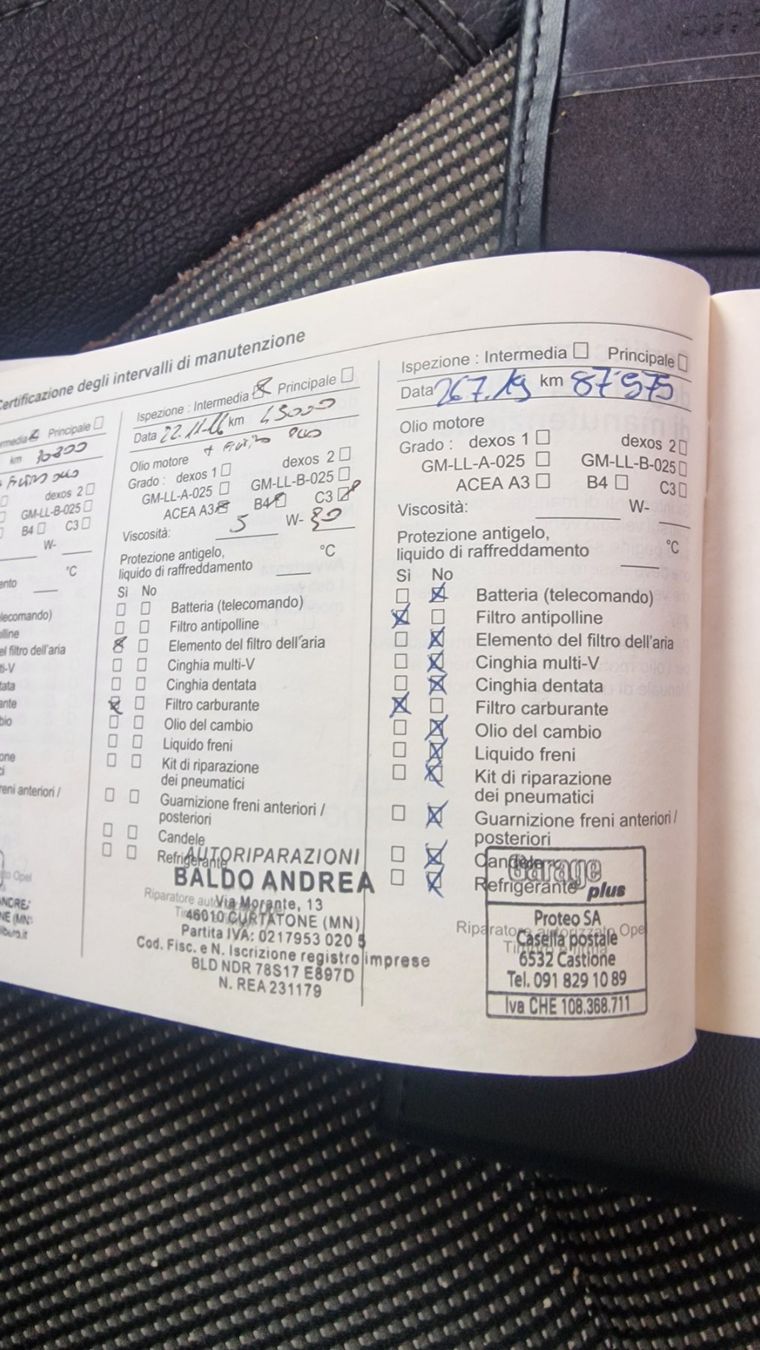 Certificazione degli intervalli di manutenzione
Principale
km 30800
dexos 2
GM-LL-B-025
B4 C3
W-
°C
lecomando)
el filtro dell'aria
reni anteriori /
Ispezione : Intermedia Principale
Data 22.11.16 km 45000
Olio motore + Filtro olio
Grado : dexos 1 dexos 2
GM-LL-A-025 GM-LL-B-025
ACEA A3 B4 C3
Viscosità: 5 W- 30
Protezione antigelo,
liquido di raffreddamento °C
Sì No
Batteria (telecomando)
Filtro antipolline
Elemento del filtro dell'aria
Cinghia multi-V
Cinghia dentata
Filtro carburante
Olio del cambio
Liquido freni
Kit di riparazione
dei pneumatici
Guarnizione freni anteriori /
posteriori
Candele
Refrigerante
AUTORIPARAZIONI
BALDO ANDREA
Via Morante, 13
46010 CURTATONE (MN)
Partita IVA: 0217953 020 5
Cod. Fisc. e N. Iscrizione registro imprese
BLD NDR 78S17 E897D
N. REA 231179
Ispezione : Intermedia Principale
Data 26.7.19 km 87'975
Olio motore
Grado : dexos 1 dexos 2
GM-LL-A-025 GM-LL-B-025
ACEA A3 B4 C3
Viscosità: W-
Protezione antigelo,
liquido di raffreddamento °C
Sì No
Batteria (telecomando)
Filtro antipolline
Elemento del filtro dell'aria
Cinghia multi-V
Cinghia dentata
Filtro carburante
Olio del cambio
Liquido freni
Kit di riparazione
dei pneumatici
Guarnizione freni anteriori /
posteriori
Candele
Refrigerante
Garage
plus
Riparatore autorizzato Opel
Proteo SA
Casella postale
6532 Castione
Tel. 091 829 10 89
Iva CHE 108.368.711